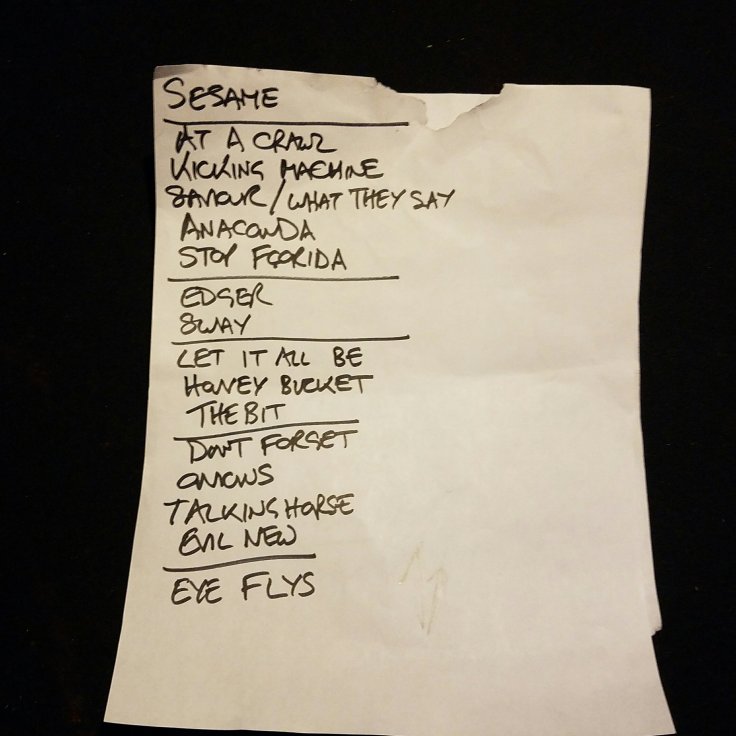 SESAME
AT A CRAWL
KICKING MACHINE
SAVOUR / WHAT THEY SAY
ANACONDA
STOP FOORIDA
EDGER
SWAY
LET IT ALL BE
HONEY BUCKET
THE BIT
DON'T FORGET
ONIONS
TALKING HORSE
EVIL NEW
EYE FLYS